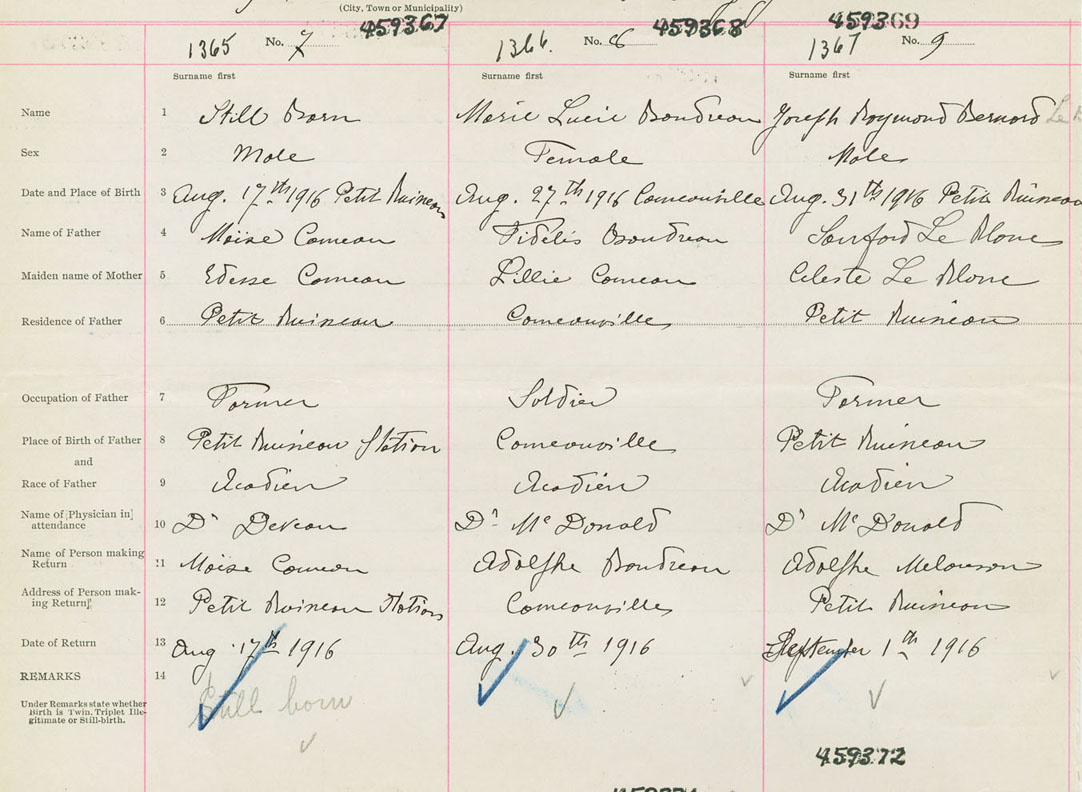 (City, Town or Municipality)
459367 459368 459369
1365 No. 7 1366. No. 8 1367 No. 9
Surname first Surname first Surname first
Name 1 Still Born Marie Lucie Boudreau Joseph Raymond Bernard Le
Sex 2 Male Female Male
Date and Place of Birth 3 Aug. 17th 1916 Petit Ruisseau Aug. 27th 1916 Comeauville Aug. 31th 1916 Petit Ruisseau
Name of Father 4 Moïse Comeau Fidélis Boudreau Sanford Le Blanc
Maiden name of Mother 5 Edesse Comeau Lillie Comeau Celeste Le Blanc
Residence of Father 6 Petit Ruisseau Comeauville Petit Ruisseau
Occupation of Father 7 Farmer Soldier Farmer
Place of Birth of Father 8 Petit Ruisseau Station Comeauville Petit Ruisseau
and
Race of Father 9 Acadien Acadien Acadien
Name of [Physician in]
attendance 10 Dr Deveau Dr McDonald Dr McDonald
Name of Person making
Return 11 Moïse Comeau Adolphe Boudreau Adolphe Melanson
Address of Person mak-
ing Return 12 Petit Ruisseau Station Comeauville Petit Ruisseau
Date of Return 13 Aug. 17th 1916 Aug. 30th 1916 September 1th 1916
REMARKS 14
Still born
Under Remarks state whether
Birth is Twin. Triplet Ille-
gitimate or Still-birth.
459372